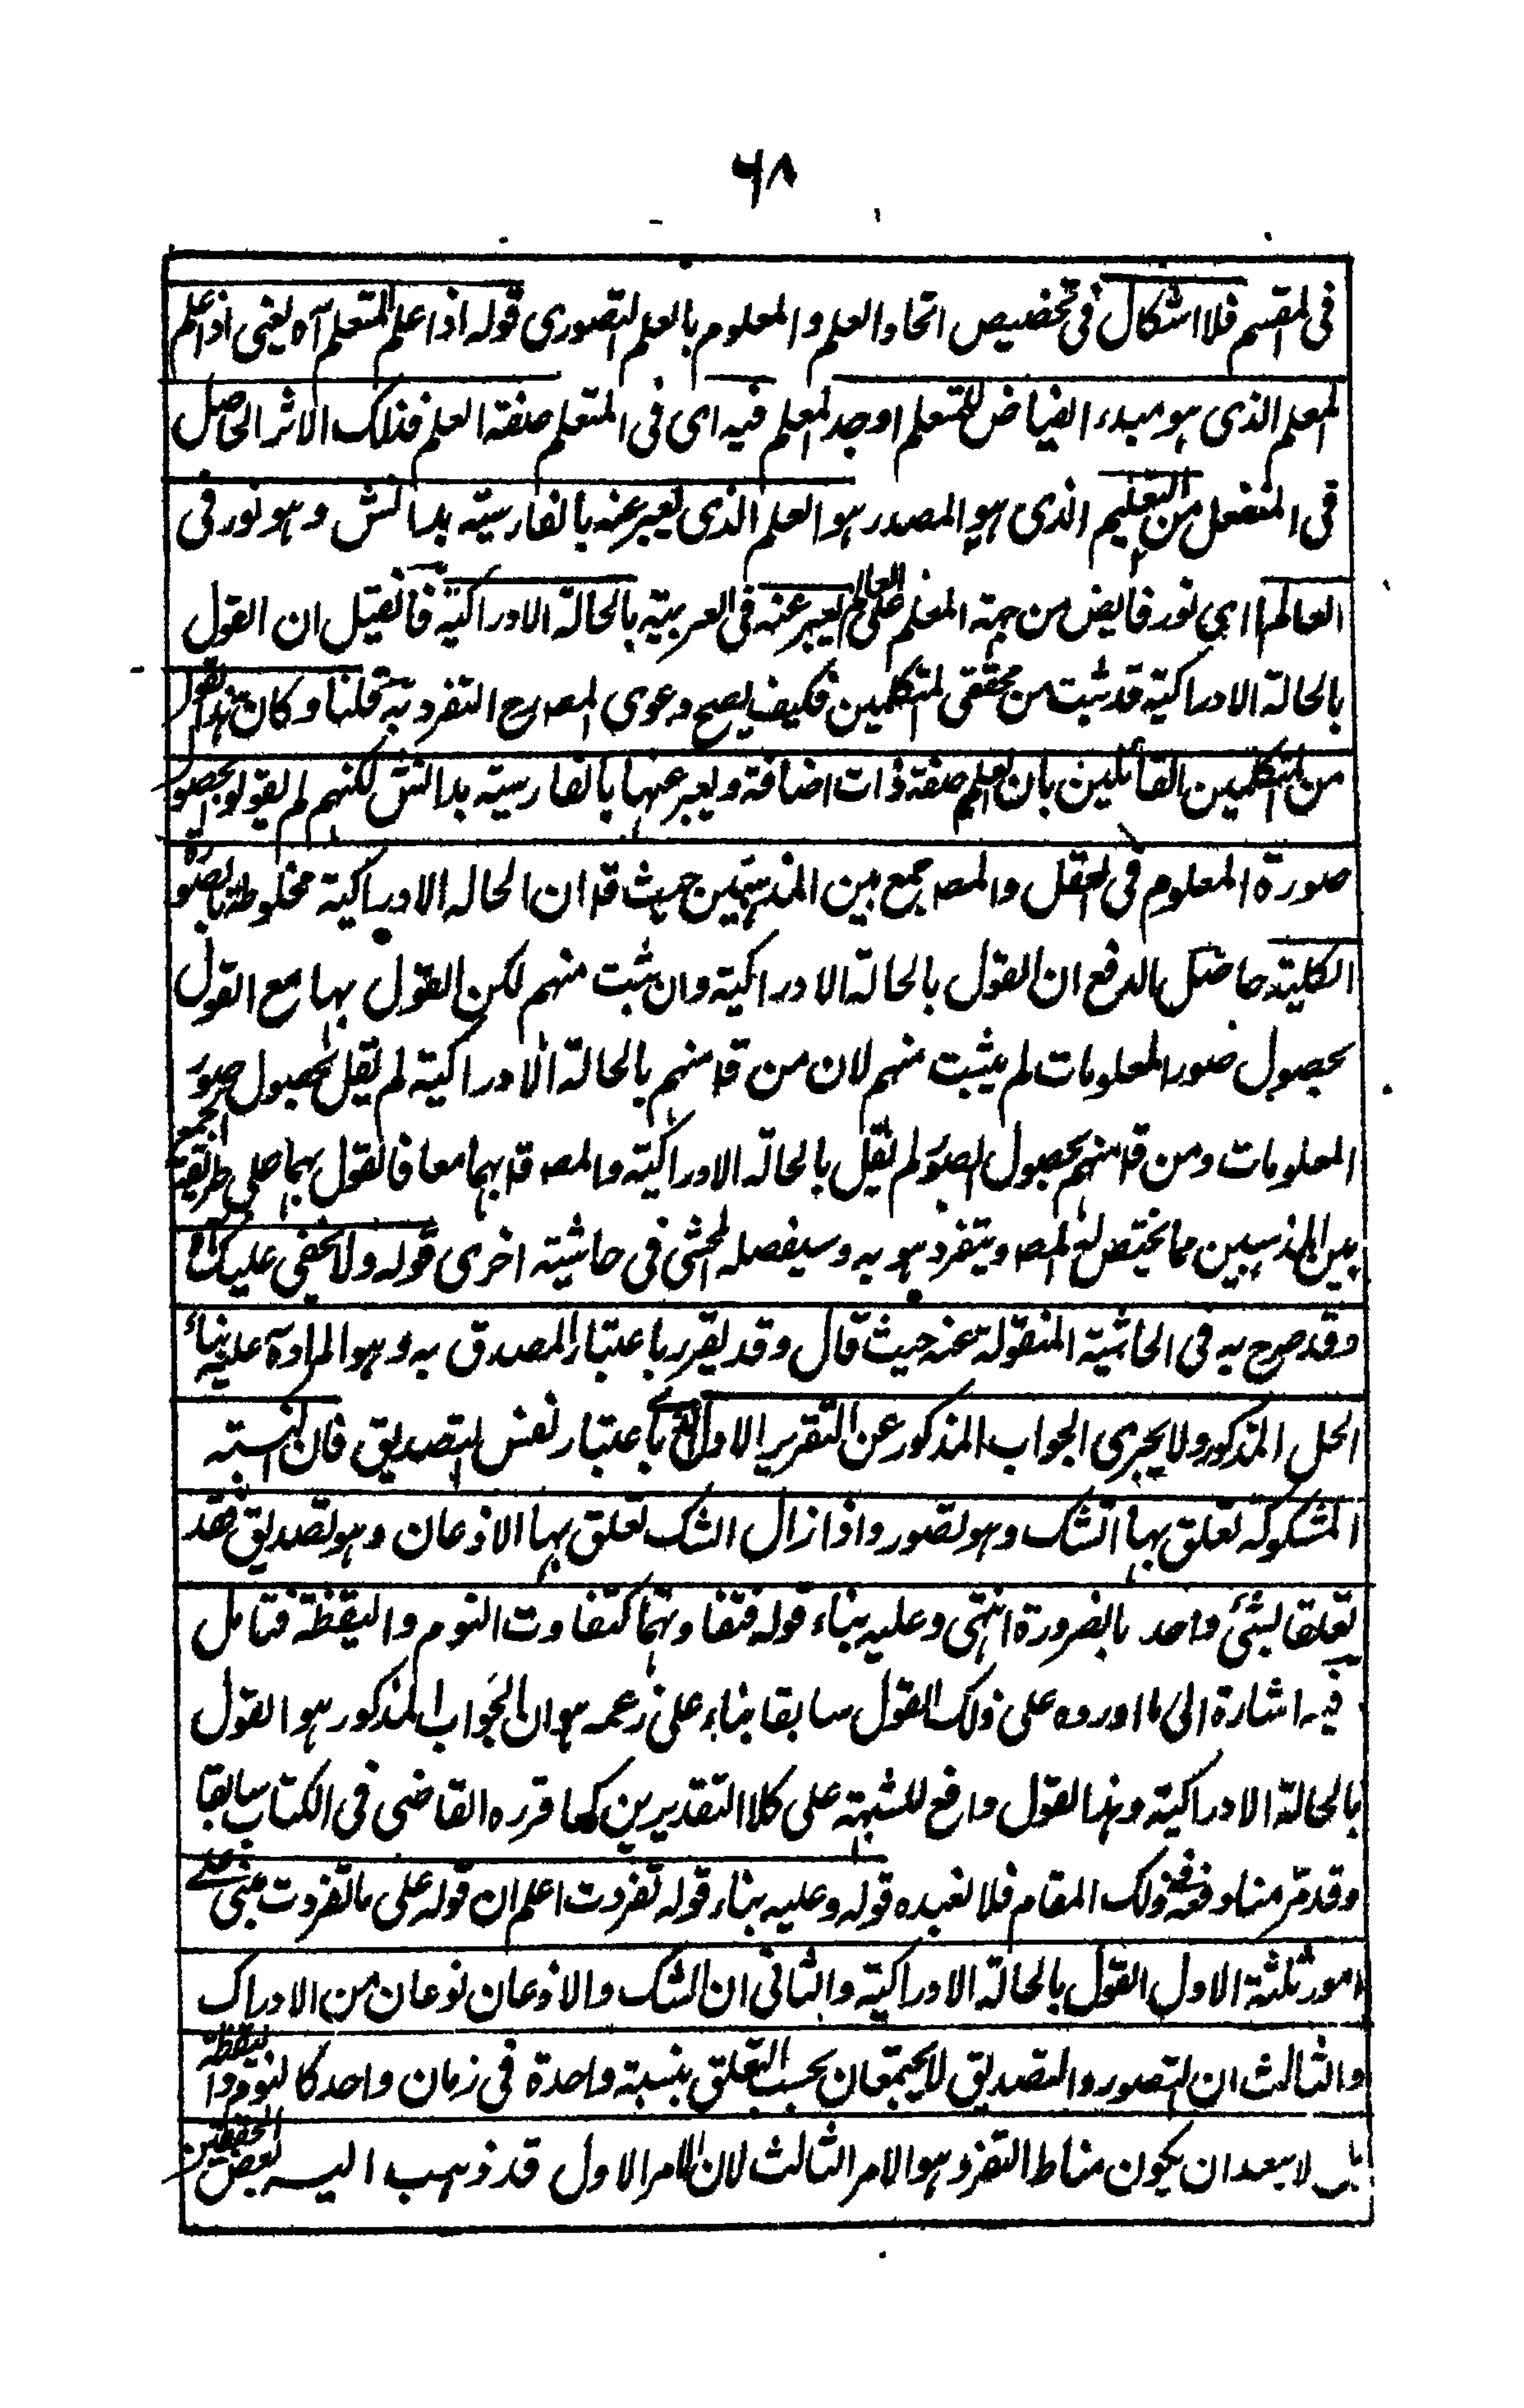 ٦٨
فى المقسم فلا اشكال فى تخصيص اتحاد العلم والمعلوم بالعلم التصورى قوله اذا علم المتعلم آه يعنى اذا علم
المعلم الذى هو مبدء الفياض للمتعلم اوجد المعلم فيه اى فى المتعلم صفة العلم فذلك الاثر الحاصل
فى المنفعل من التعليم الذى هو المصدر هو العلم الذى يعبر عنه بالفارسية بدانش وهو نور فى
العالم اى نور فايض من جهة المعلم على العالم يعبر عنه فى العربية بالحالة الادراكية فان قيل ان القول
بالحالة الادراكية قد ثبت من محققى المتكلمين فكيف يصح دعوى المصرح التفرد به قلنا وكان هذا القول
من المتكلمين القائلين بان العلم صفة ذات اضافة ويعبر عنها بالفارسية بدانش لكنهم لم يقولو بحصول
صورة المعلوم فى العقل والمصـ جمع بين المذهبين حيث قـ ان الحاله الادراكية مخلوطة بالصورة
الكلية حاصل الدفع ان القول بالحالة الادراكية وان ثبت منهم لكن القول بها مع القول
بحصول صور المعلومات لم يثبت منهم لان من قـ منهم بالحالة الادراكية لم يقل بحصول صور
المعلومات ومن قـ منهم بحصول الصور لم يقل بالحالة الادراكية والمصـ قـ بهما معا فالقول بهما على طريقة الجمع
بين المذهبين مما يختص به المصـ ويتفرد هو به وسيفصله المحشى فى حاشية اخرى قوله ولا يخفى عليك اه
وقد صرح به فى الحاشية المنقولة عنه حيث قال وقد يقرر باعتبار المصدق به وهو المراد آه عليه بناء
الحل المذكور ولا يجرى الجواب المذكور عن التقرير الاول اى باعتبار نفس التصديق فان النسبة
المشكوكة تعلق بها الشك وهو تصور واذا زال الشك تعلق بها الاذعان وهو تصديق فقد
تعلقا بشئ واحد بالضرورة انتهى وعليه بناء قوله فتفاوتهما كتفاوت النوم واليقظة فتامل
فيه اشارة الى ما اورده على ذلك القول سابقا بناء على زعمه هو ان الجواب المذكور هو القول
بالحالة الادراكية وهذا القول دافع للشبهة على كلا التقديرين كما قرره القاضى فى الكتاب سابقا
وقد مر منا دفعه فى ذلك المقام فلا نعيده قوله وعليه بناء قوله تفردت اعلم ان قوله على ما تفردت مبنى على
امور ثلثة الاول القول بالحالة الادراكية والثانى ان الشك والاذعان نوعان من الادراك
والثالث ان التصور والتصديق لا يجتمعان بحسب التعلق بنسبة واحدة فى زمان واحد كالنوم واليقظة
بل لا يبعد ان يكون مناط التفرد هو الامر الثالث لان الامر الاول قد ذهب اليه بعض المحققين